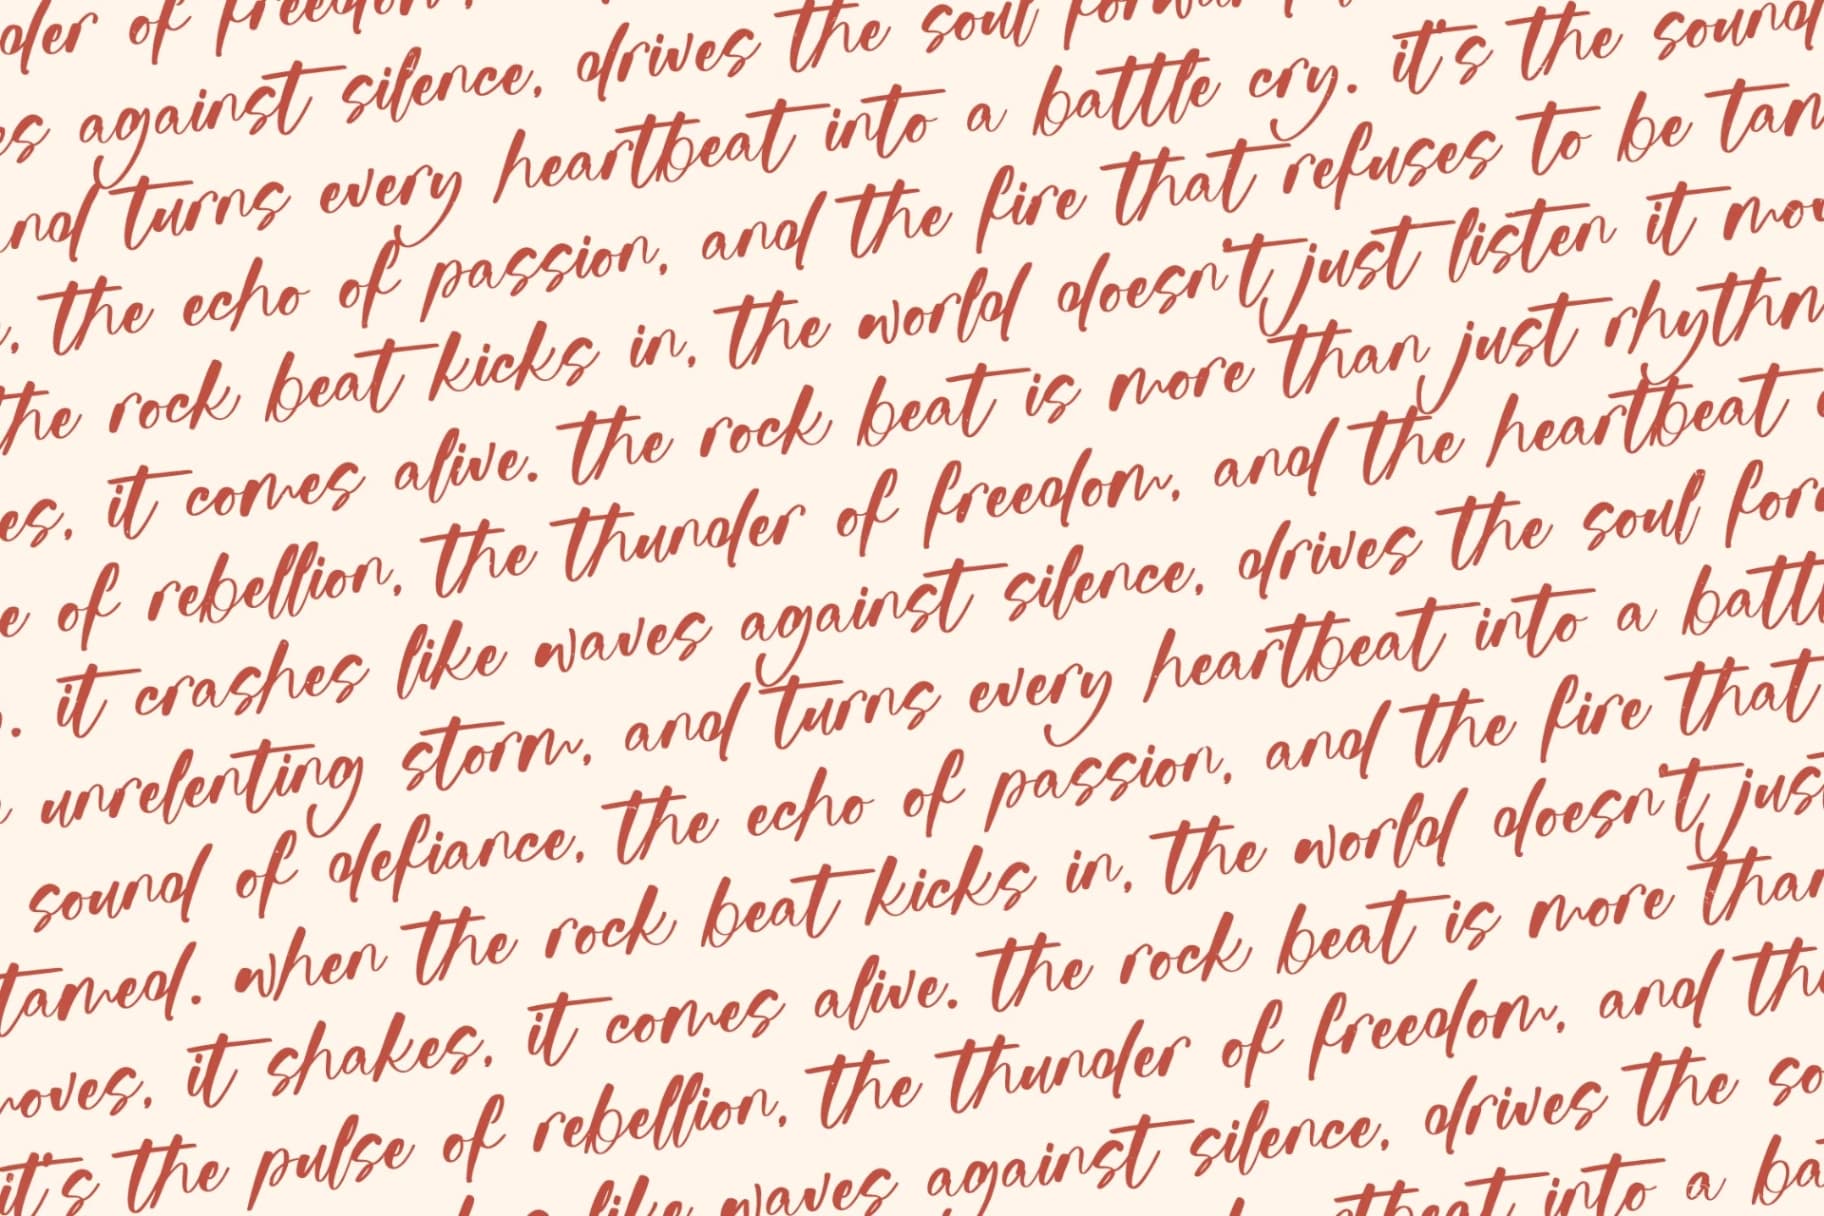 der of freedom,
against silence, drives the soul forward
and turns every heartbeat into a battle cry. it's the sound
, the echo of passion, and the fire that refuses to be
the rock beat kicks in, the world doesn't just listen it
it comes alive. the rock beat is more than just
of rebellion, the thunder of freedom, and the heartbeat
it crashes like waves against silence, drives the soul
unrelenting storm, and turns every heartbeat into a
sound of defiance, the echo of passion, and the fire that
tamed. when the rock beat kicks in, the world doesn't just
moves, it shakes, it comes alive. the rock beat is more than
it's the pulse of rebellion, the thunder of freedom, and the
like waves against silence, drives the
into a